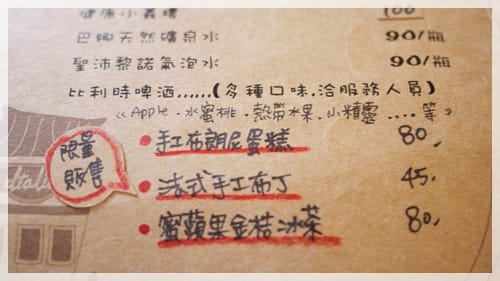 健康小義樓 100
巴娜天然礦泉水 90/瓶
聖沛黎諾氣泡水 90/瓶
比利時啤酒......(多種口味.洽服務人員)
《Apple.水蜜桃.熱帶水果.小精靈....等》
限量
販售
手工布朗尼蛋糕 80.
法式手工布丁 45.
蜜蘋果金桔冰茶 80.